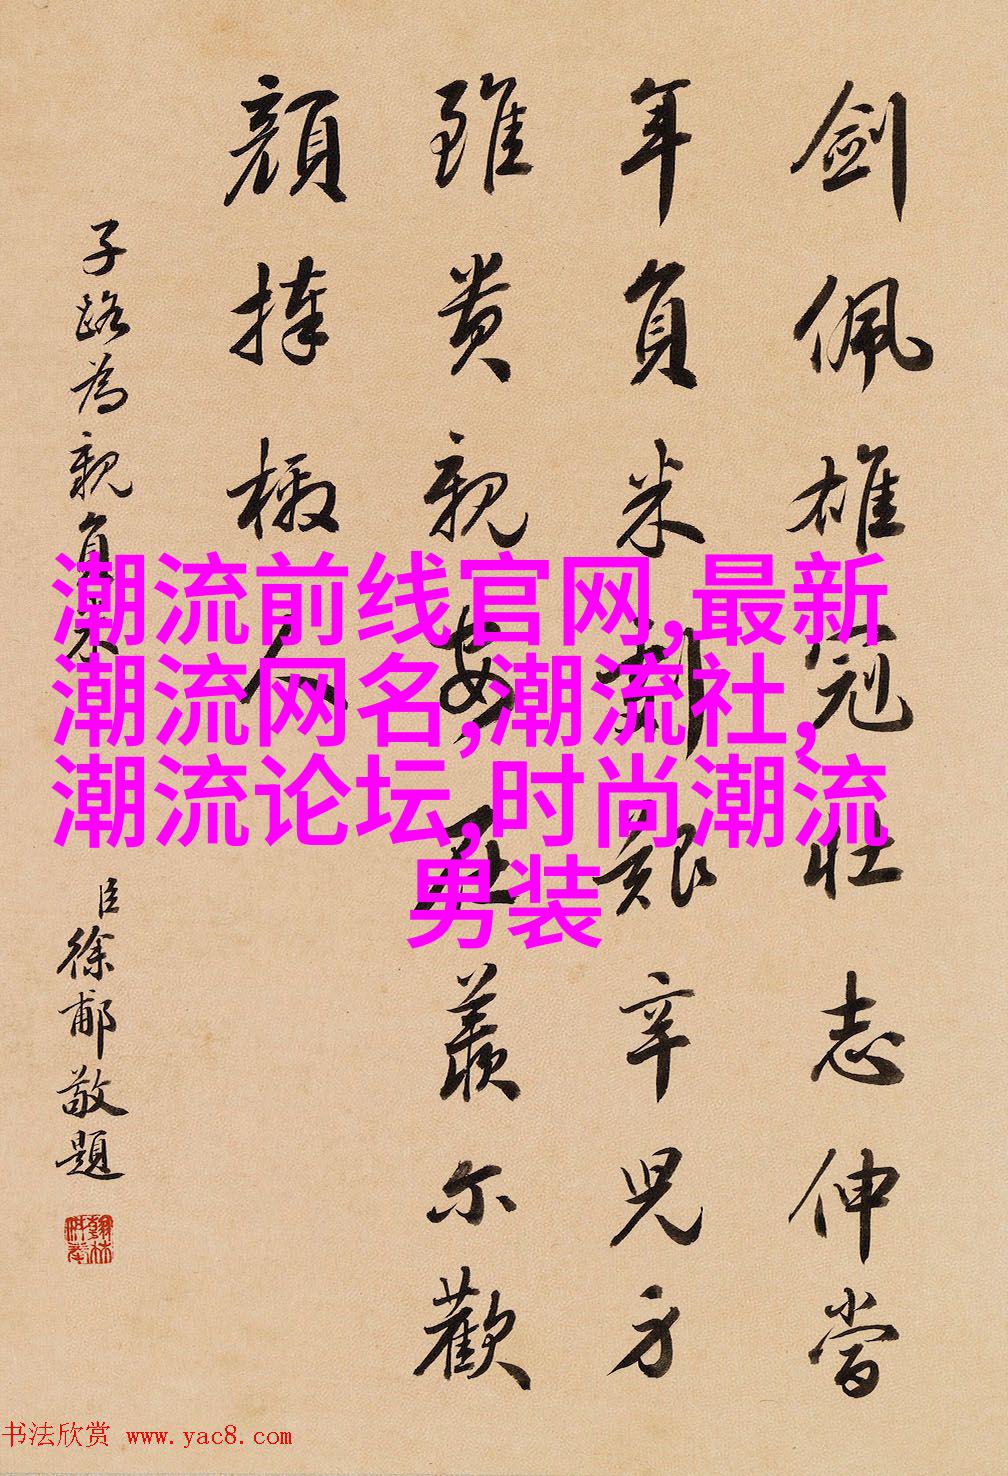 劍佩雄冠壯志伸當
年負米艱辛兒方
雖貴親安在羨尔歡
顏捧檄人
子路為親負米
臣徐郙敬題
潮流前线官网,最新
潮流网名,潮流社,
潮流论坛,时尚潮流
男装
书法欣赏 www.yac8.com